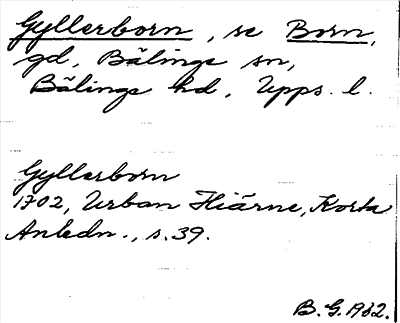 Gyllerborn, se Born,
gd, Bälinge sn,
Bälinge hd, Upps. l.
Gyllerborn
1702, Urban Hiärne, Korta
Anledn., s. 39.
B. G. 1962.